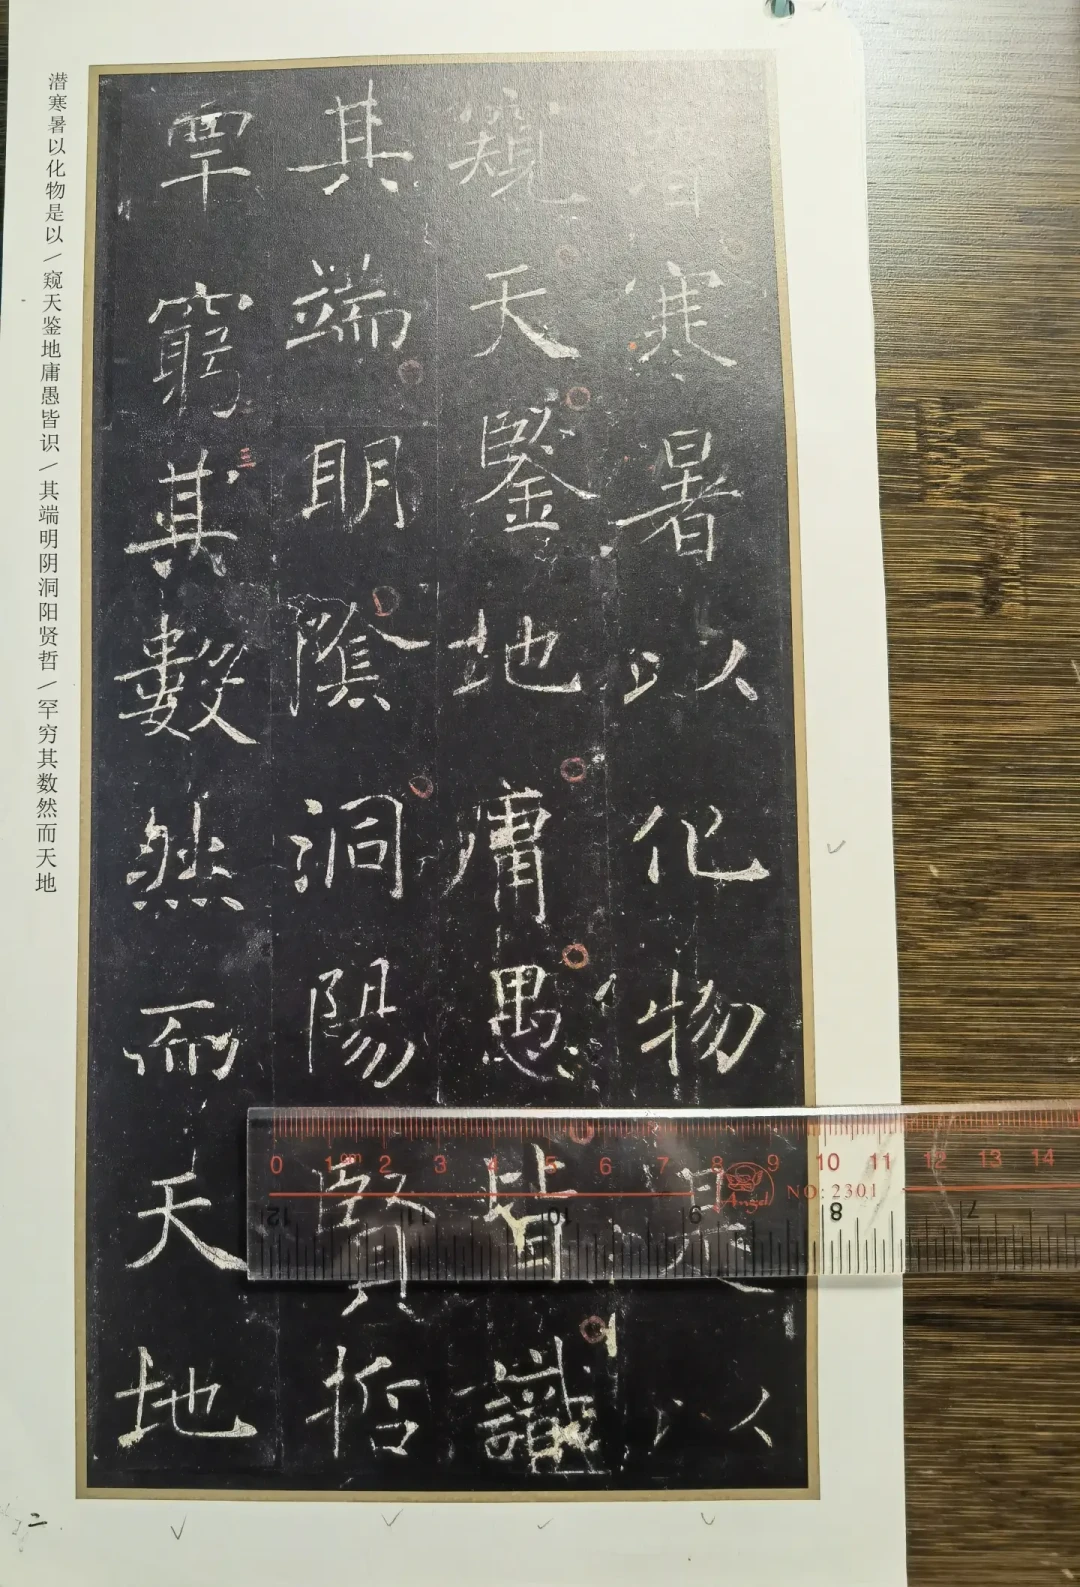 潛寒暑以化物是以
窺天鑒地庸愚皆識
其端明陰洞陽賢哲
罕窮其數然而天地
潜寒暑以化物是以/窥天鉴地庸愚皆识/其端明阴洞阳贤哲/罕穷其数然而天地
三
二
0 1cm 2 3 4 5 6 7 8 9 10 11 12 13 14
Angel NO:2301
12 11 10 9 8 7